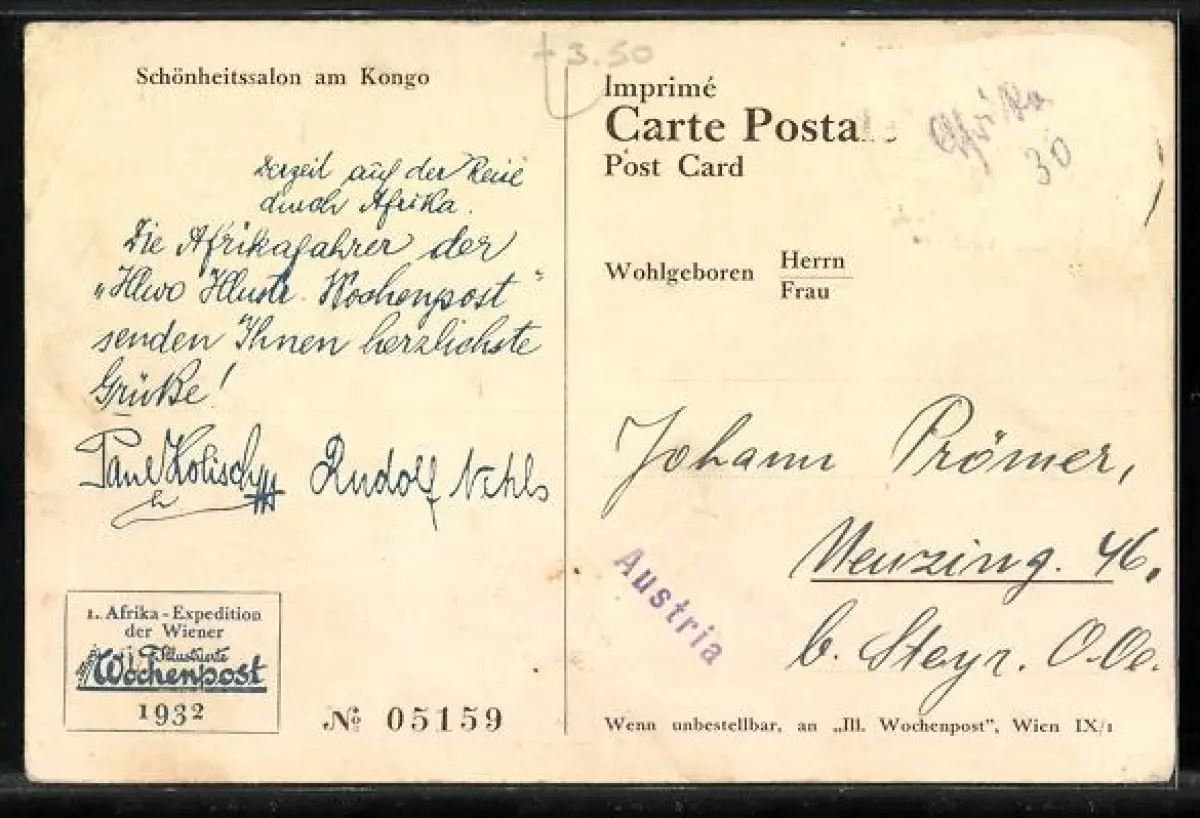 + 3.50
Schönheitssalon am Kongo
Derzeit auf der Reise
durch Afrika.
Die Afrikafahrer der
„Illwo Illustr. Wochenpost"
senden Ihnen herzlichste
Grüße!
Paul Kolisch Rudolf Nehls
1. Afrika-Expedition
der Wiener
Illustrierte
Wochenpost
1932
№ 05159
Imprimé
Carte Postale
Post Card
Afrika
30
Wohlgeboren Herrn
Frau
Johann Prömer,
Neuzing. 46.
b. Steyr. O.Oe.
Austria
Wenn unbestellbar, an „Ill. Wochenpost", Wien IX/1